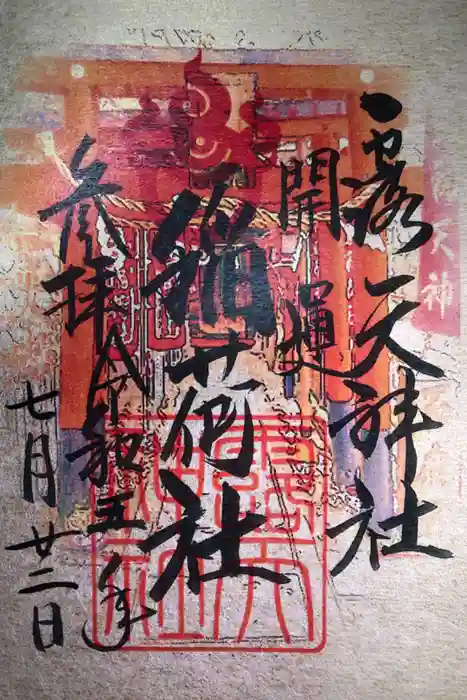 露天神社
開運
稲荷社
参拝 令和五年
七月廿二日
天神